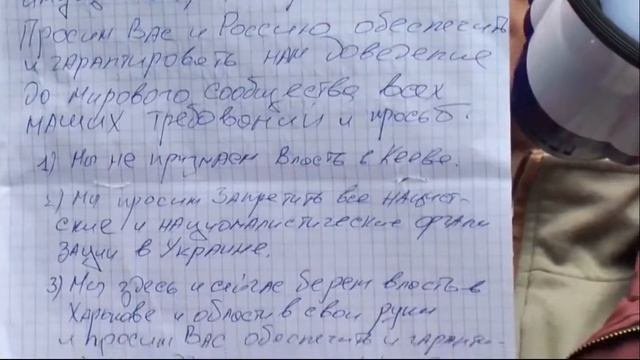 Просим Вас и Россию обеспечить
и гарантировать нам доведение
до мирового сообщества всех
наших требований и просьб.
1) Мы не признаем Власть в Киеве.
2) Мы просим Запретить все нацист-
ские и националистические органи
зации в Украине.
3) Мы здесь и сейчас берем власть в
Харькове и области в свои руки
и просим Вас обеспечить и гаранти-